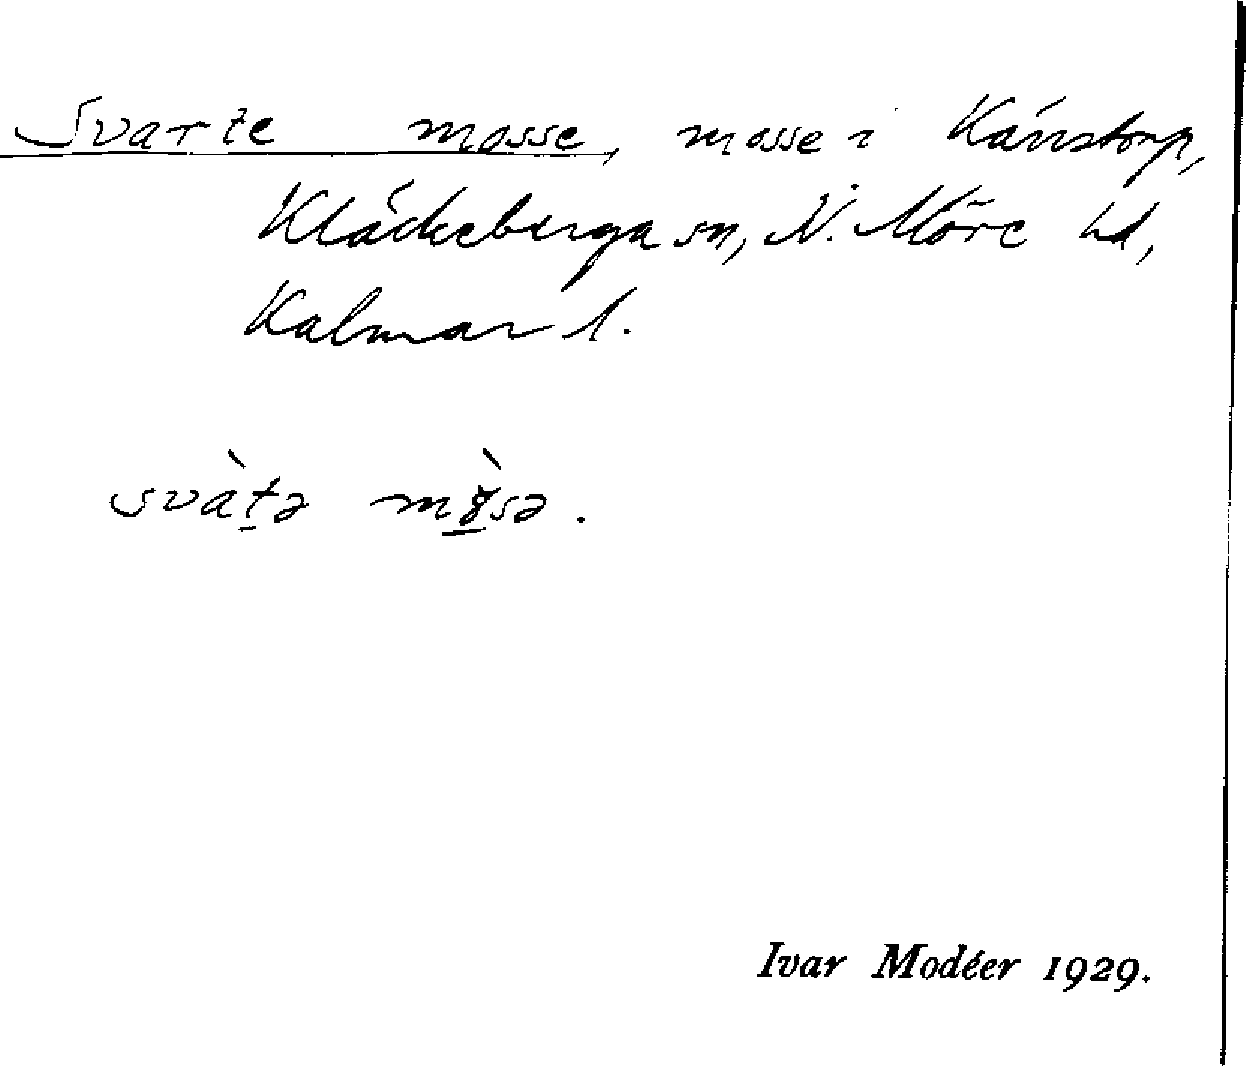 Svarte mosse, mosse i Kånstorp,
Kläckeberga sn, N. Möre hd,
Kalmar l.
svàt̠ə
Ivar Modéer 1929.